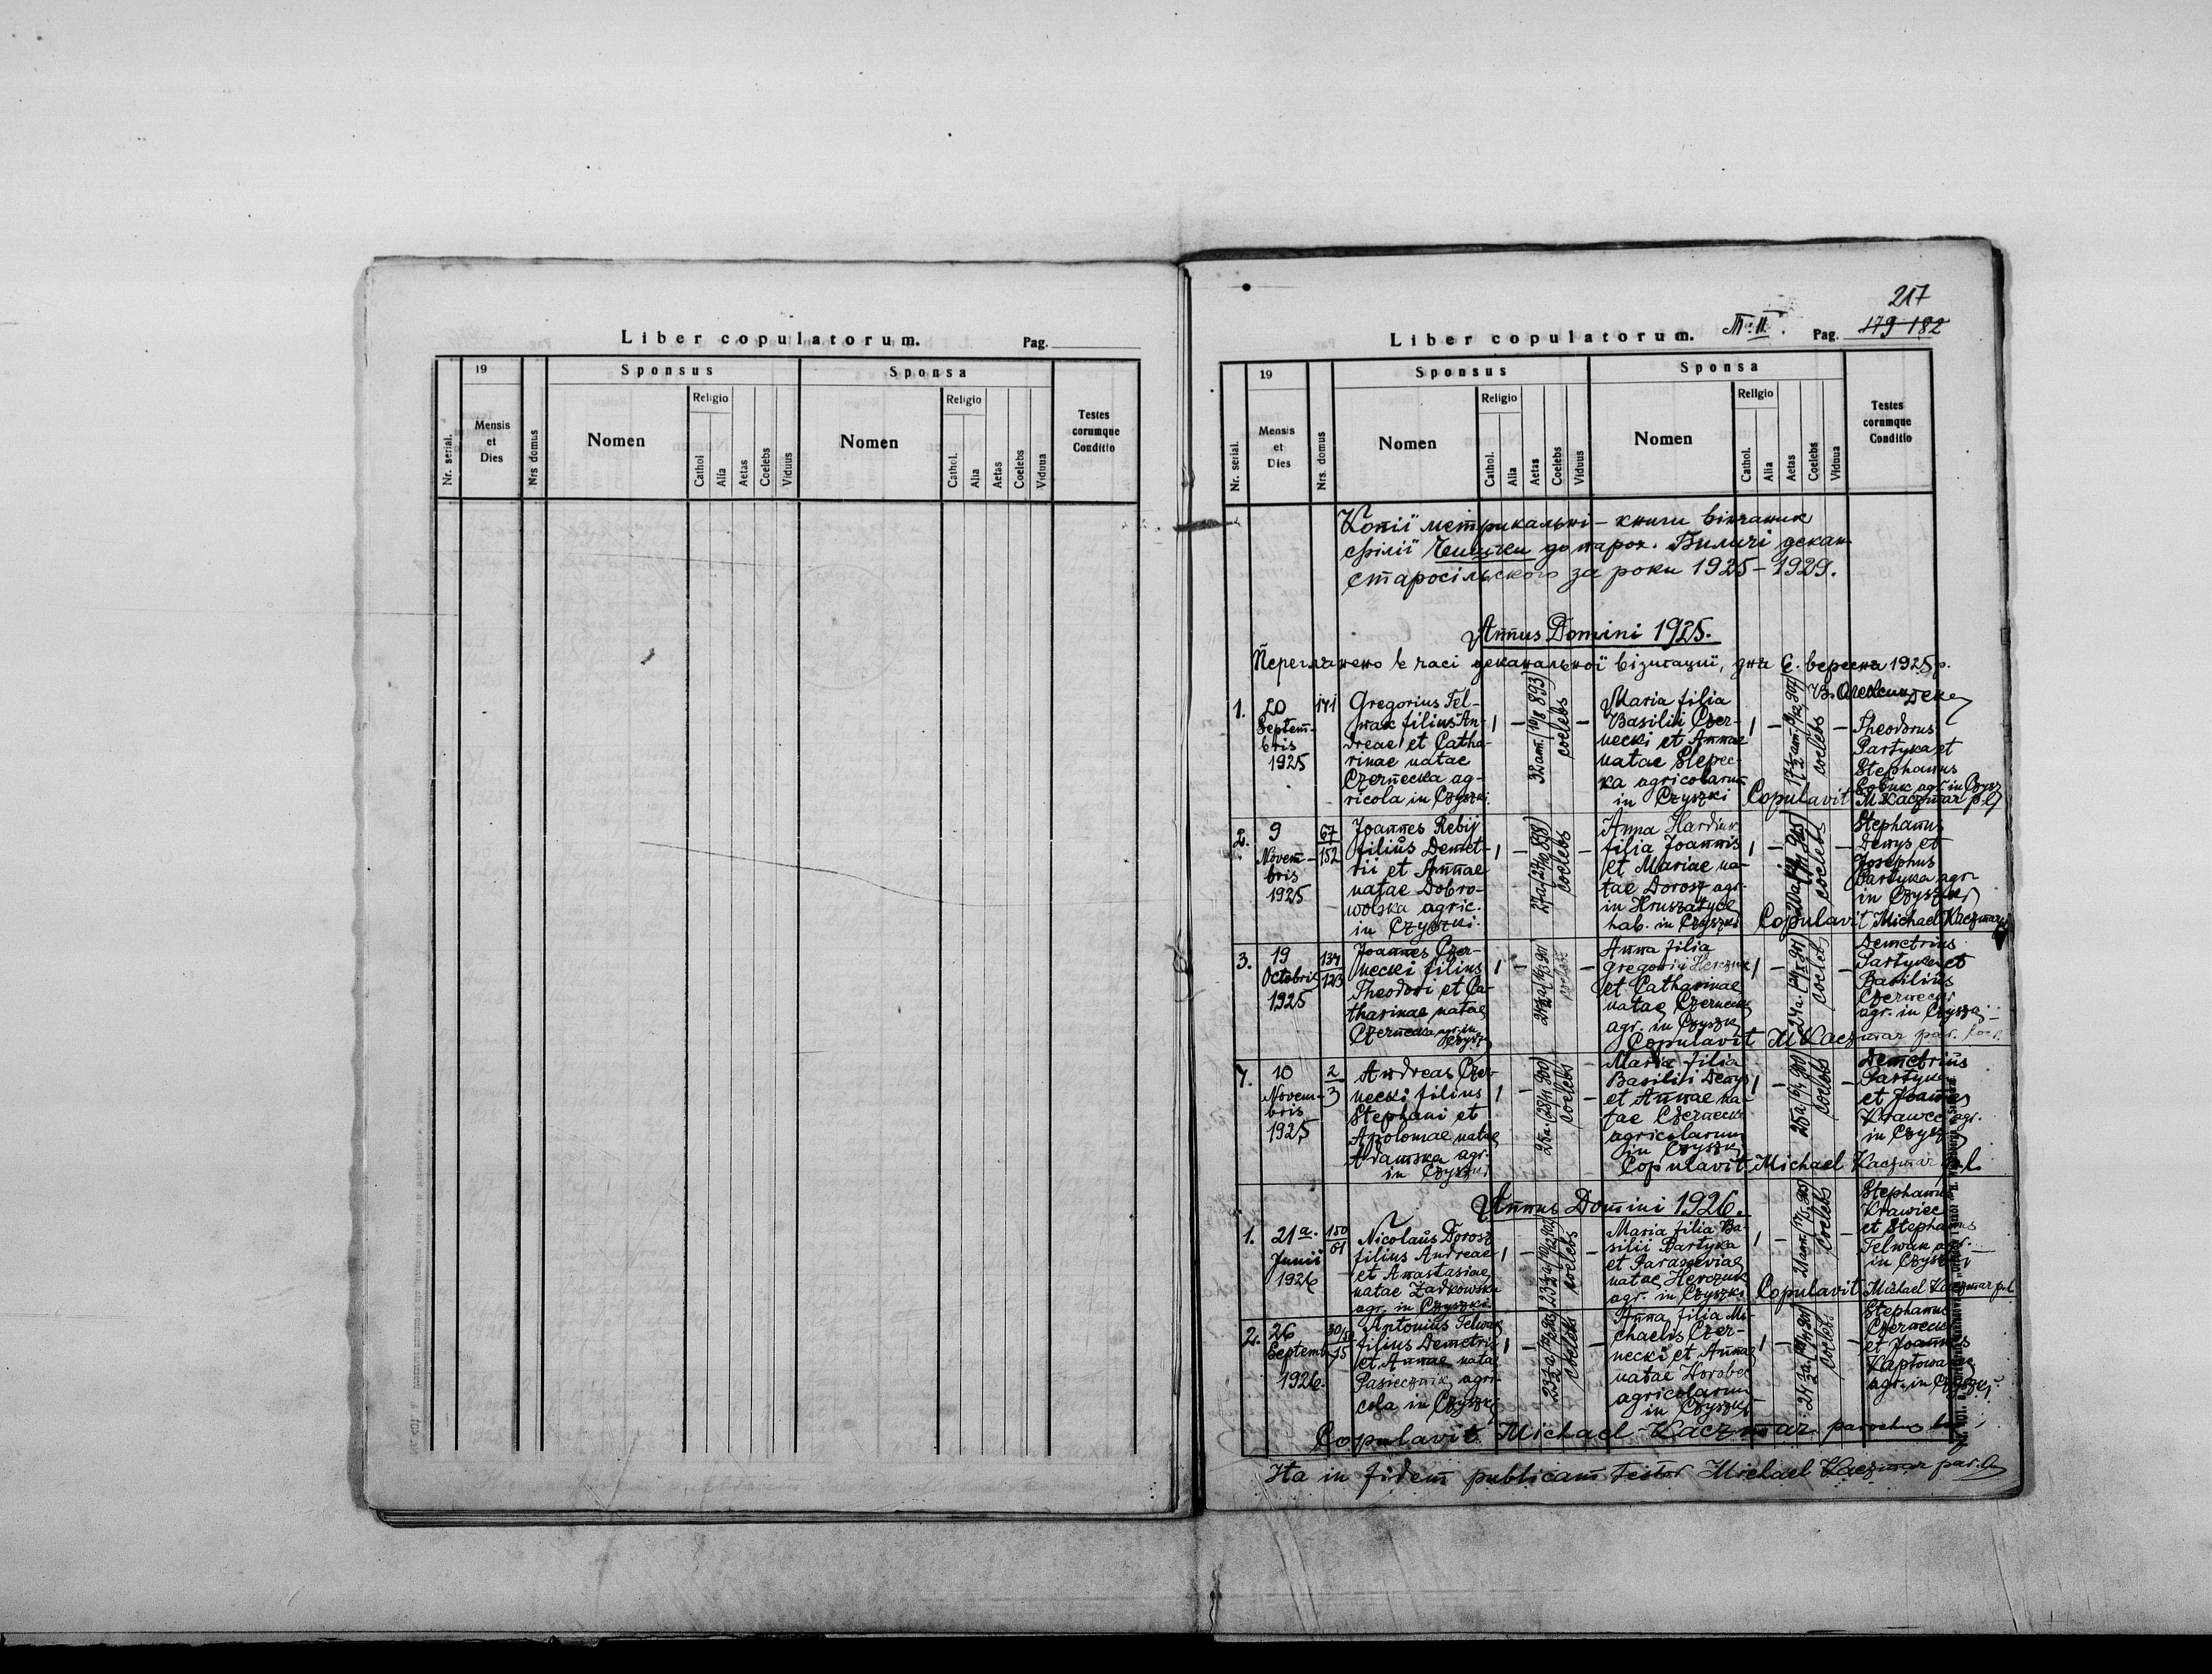 Liber copulatorum.
Pag.
Nr. serial.
19
Mensis
et
Dies
Nrs domus
Sponsus
Nomen
Religio
Cathol
Alia
Aetas
Coelebs
Viduus
Sponsa
Nomen
Religio
Cathol.
Alia
Aetas
Coelebs
Vidua
Testes
eorumque
Conditio
217
Liber copulatorum.
Pag. 179-182
Nr. serial.
19
Mensis
et
Dies
Nrs. domus
Sponsus
Nomen
Religio
Cathol.
Alia
Aetas
Coelebs
Viduus
Sponsa
Nomen
Religio
Cathol.
Alia
Aetas
Coelebs
Vidua
Testes
eorumque
Conditio
Копії метрикальні - книги вінчаних
філії Чишки до парох. Биличі декан.
старосільского за роки 1925-1929.
Annus Domini 1925.
Переглянено в часі деканальної візитациї, дня 6. вересня 1925 р.
1.
20
Septem-
bris
1925
141
Gregorius Fel-
wak filius An-
dreae et Catha-
rinae natae
Czernecka ag-
ricola in Czyszki.
32 ann.
coelebs
Maria filia
Basilii Czer-
necki et Annae
natae Slepec-
ka agricolarum
in Czyszki
coelebs
Theodorus
Partyka et
Stephanus
agr. in Czysz
Copulavit M Kaczmar
2.
9
Novem-
bris
1925
67
152
Joannes Rebij
filius Demet-
rii et Annae
natae Dobro-
wolska agric.
in Czyszki.
coelebs
Anna
filia Joannis
et Mariae na-
tae Dorosz agr.
in Hruszatyce
hab. in Czyszki
coelebs
Stephanus
Denys et
Josephus
Partyka agr.
in Czyszki
Copulavit Michael Kaczmar
3.
19
Octobris
1925
134
123
Joannes Czer-
necki filius
Theodori et Ca-
tharinae natae
Czernecka agr. in
Czyszki
Anna filia
Gregorii Herczuk
et Catharinae
natae Czernecka
agr. in Czyszki
24 a.
coelebs
Demetrius
Partyka et
Basilius
Czernecki
agr. in Czyszki
Copulavit M Kaczmar par.
10
Novem-
bris
1925
2
3
Andreas Czer-
necki filius
Stephani et
Apoloniae natae
Adamska agr.
in Czyszki
25 a.
coelebs
Maria filia
Basilii Denys
et Annae na-
tae Czernecka
agricolarum
in Czyszki
25 a.
coelebs
Demetrius
Partyka
et Joannes
Krawec agr.
in Czyszki
Copulavit Michael Kaczmar p. l.
Annus Domini 1926.
1.
21 a.
Junii
1926
150
61
Nicolaus Dorosz
filius Andreae
et Anastasiae
natae Zadkowska
agr. in Czyszki.
coelebs
Maria filia Ba-
silii Partyka
et Parasceviae
natae Herczuk
agr. in Czyszki
21 ann.
coelebs
Stephanus
Krawiec
et Stephanus
Felwak agr.
in Czyszki
Copulavit Michael Kaczmar
2.
26
Septemb.
1926.
15
Antonius Felwak
filius Demetrii
et Annae natae
Pasiecznik agri-
cola in Czyszki
coelebs
Anna filia Mi-
chaelis Czer-
necki et Annae
natae Horobec
agricolarum
in Czyszki
coelebs
Stephanus
Czernecki
et Joannes
agr. in Czyszki
Copulavit Michael Kaczmar parochus
Ita in fidem publicam testor Michael Kaczmar par.